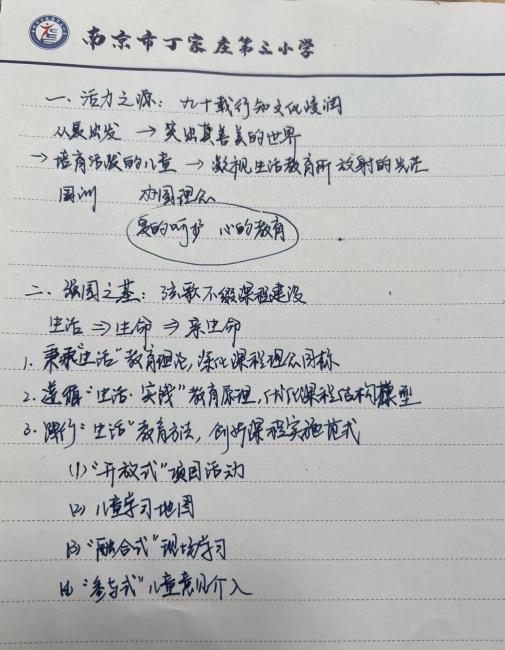 南京市丁家庄第三小学
一、活力之源：九十载行知文化浸润
从爱出发 → 突出真善美的世界
→ 培育活泼的儿童 → 凝视生活教育所放射的光芒
园训 办园理念
爱的呵护 心的教育
二、强园之基：弦歌不缀课程建设
生活 ⇒ 生命 ⇒ 亲生命
1. 秉承"生活"教育理论，深化课程理念目标
2. 遵循"生活·实践"教育原理，优化课程结构模型
3. 践行"生活"教育方法，创新课程实施范式
(1) "开放式"项目活动
(2) 儿童学习地图
(3) "融合式"现场学习
(4) "参与式"儿童意见介入